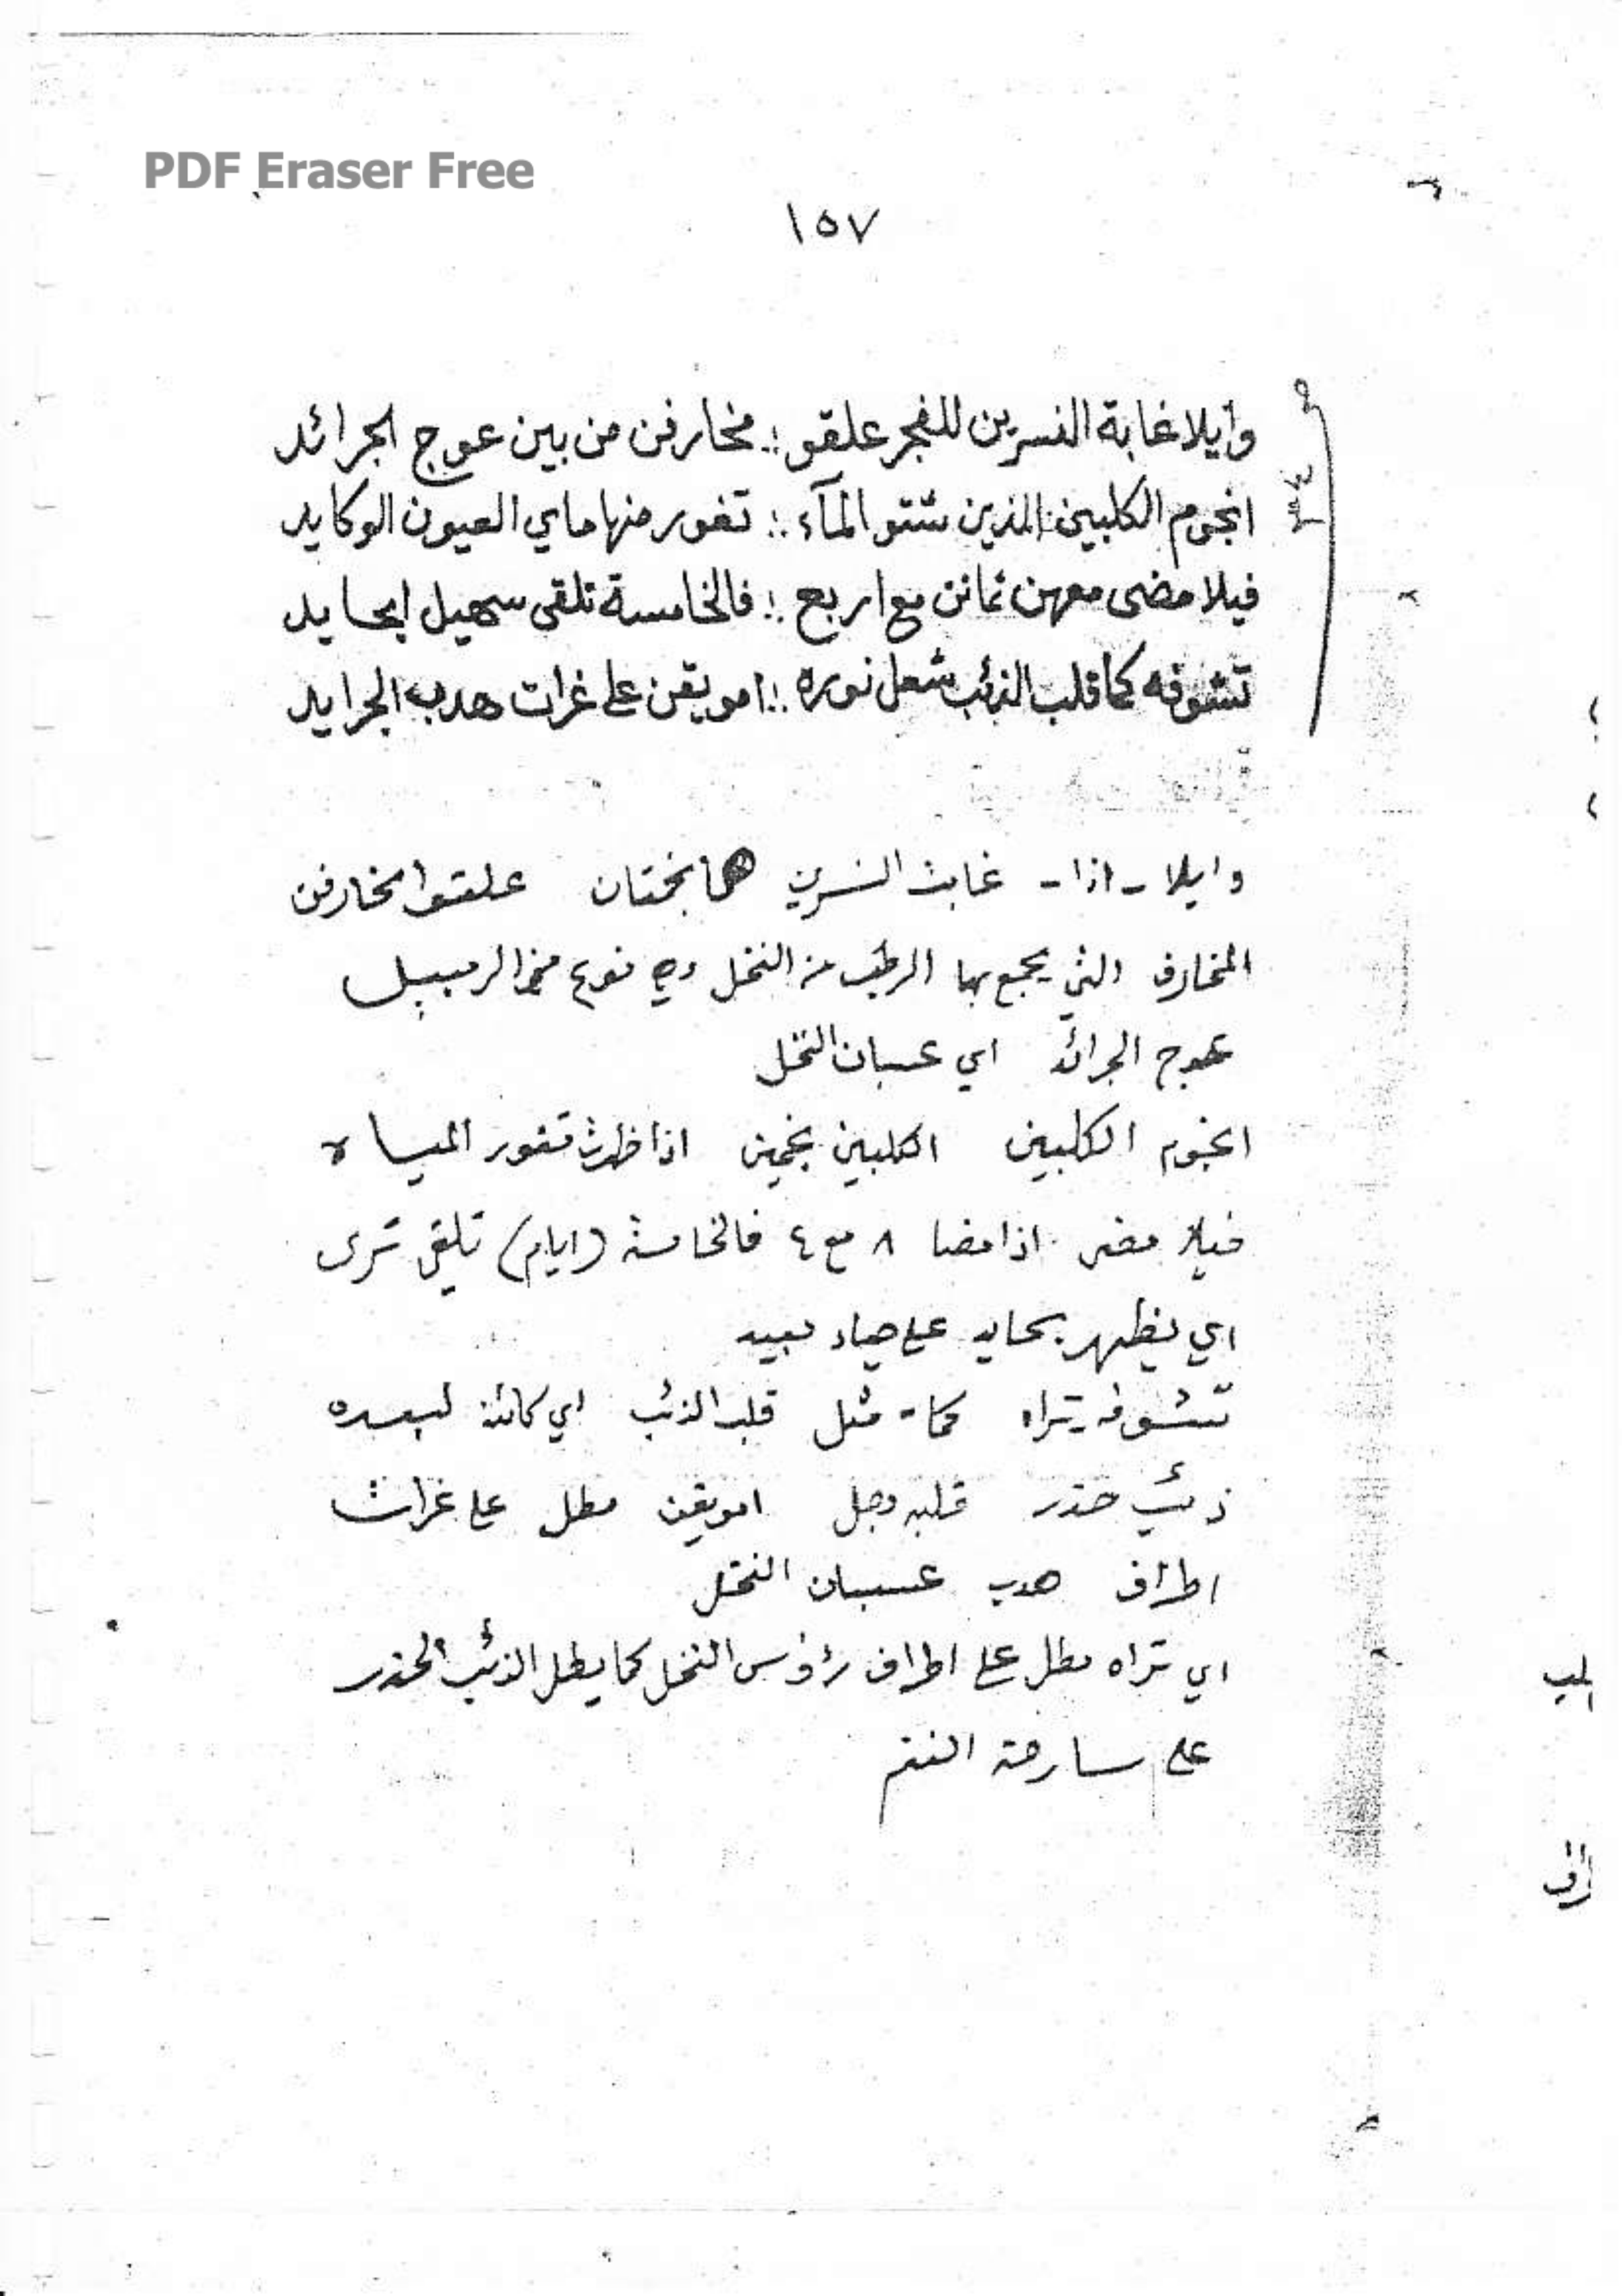 PDF Eraser Free
١٥٧
وايلا غابة النسرين للفجر علقو :. مخارفن من بين عوج الجرائد
انجوم الكلبين الذين شتو المآء :. تغور منها ماي العيون الوكايد
فيلا مضى معهن ثمانن مع اربع :. فالخامسة تلقى سهيل ايحايد
تشوفه كما قلب الذئب شعل نوره :. امويقن على غرات هدب الجرايد
وايلا - اذا - غابت النسرين هما نجمتان علقوا مخارفن
المخارف التي يجمع بها الرطب من النخل وهي نوع من الزمبيل
عوج الجرائد اي عسبان النخل
انجوم الكلبين الكلبين نجمين اذا ظهرت تغور المياه
فيلا مضى اذا مضا ٨ مع ٤ فالخامسة (ايام) تلقى ترى
اي يظهر يحايد على حياد بعيد
تشوفه تراه كما - مثل قلب الذئب اي كائنه لبعده
ذئب حذر قلبه وجل امويقن مطل على غرات
اطراف هدب عسبان النخل
اي تراه مطل على اطراف رؤوس النخل كما يطل الذئب الحذر
على سارحة الغنم